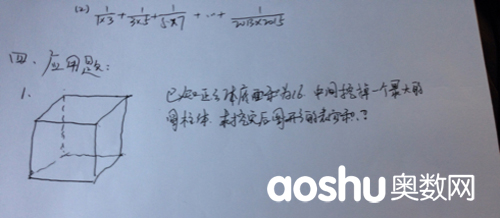 (2) 1/1×3 + 1/3×5 + 1/5×7 + … + 1/2013×2015
四、应用题：
1.
已知正方体底面积为16，中间挖掉一个最大的
圆柱体，求挖完后图形的表面积.？
aoshu奥数网